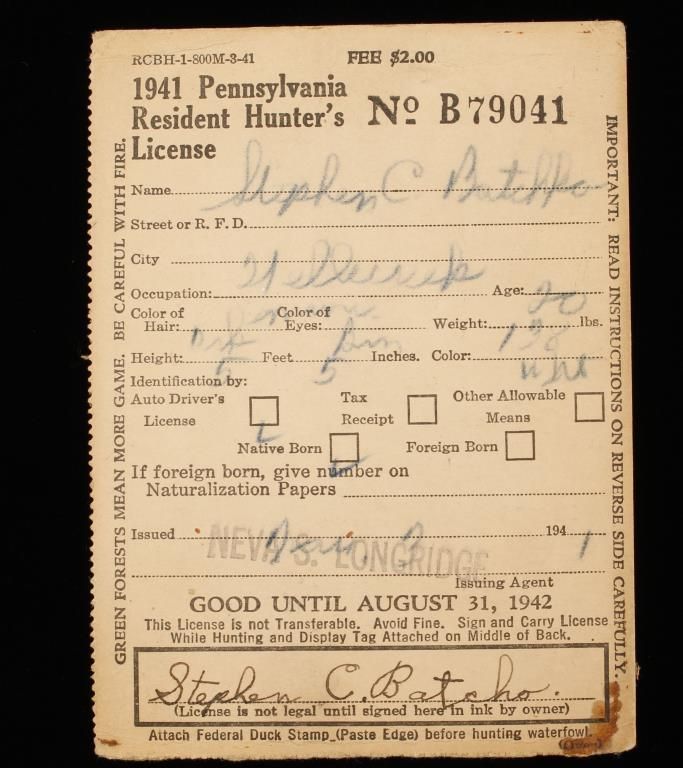 RCBH-1-800M-3-41 FEE $2.00
1941 Pennsylvania
Resident Hunter's
License
Nº B79041
Name Stephen C Batchko
Street or R. F. D.
City
Occupation: Age: 20
Color of Hair: Color of Eyes: brn Weight: 138 lbs.
Height: 5 Feet 5 Inches. Color: wht
Identification by:
Auto Driver's License
Tax Receipt
Other Allowable Means
Native Born Foreign Born
If foreign born, give number on
Naturalization Papers
Issued 1941
NEVA S. LONGRIDGE
Issuing Agent
GOOD UNTIL AUGUST 31, 1942
This License is not Transferable. Avoid Fine. Sign and Carry License
While Hunting and Display Tag Attached on Middle of Back.
Stephen C. Batcho.
(License is not legal until signed here in ink by owner)
Attach Federal Duck Stamp (Paste Edge) before hunting waterfowl.
GREEN FORESTS MEAN MORE GAME. BE CAREFUL WITH FIRE.
IMPORTANT: READ INSTRUCTIONS ON REVERSE SIDE CAREFULLY.